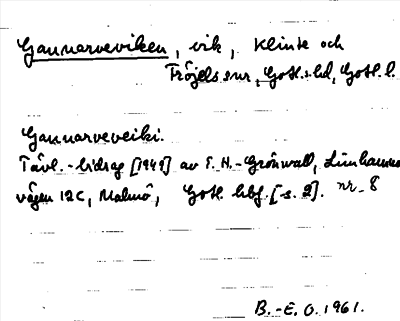 Gannarveviken, vik, Klinte och
Fröjels snr, Gotl. s. hd, Gotl. l.
Gannarveveiki.
Tävl.-bidrag [1949] av E. H.-Grönwall, Limhamns
vägen 12C, Malmö, Gotl. hbf. [s. 2]. nr. 8
B.-E. O. 1961.